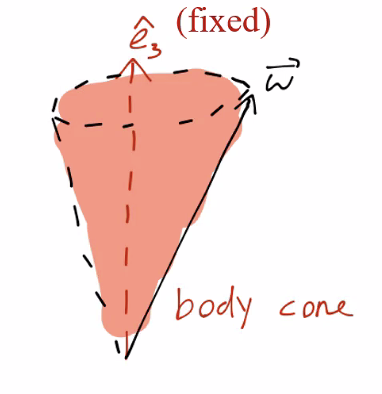 ê₃ (fixed)
w⃗
body cone